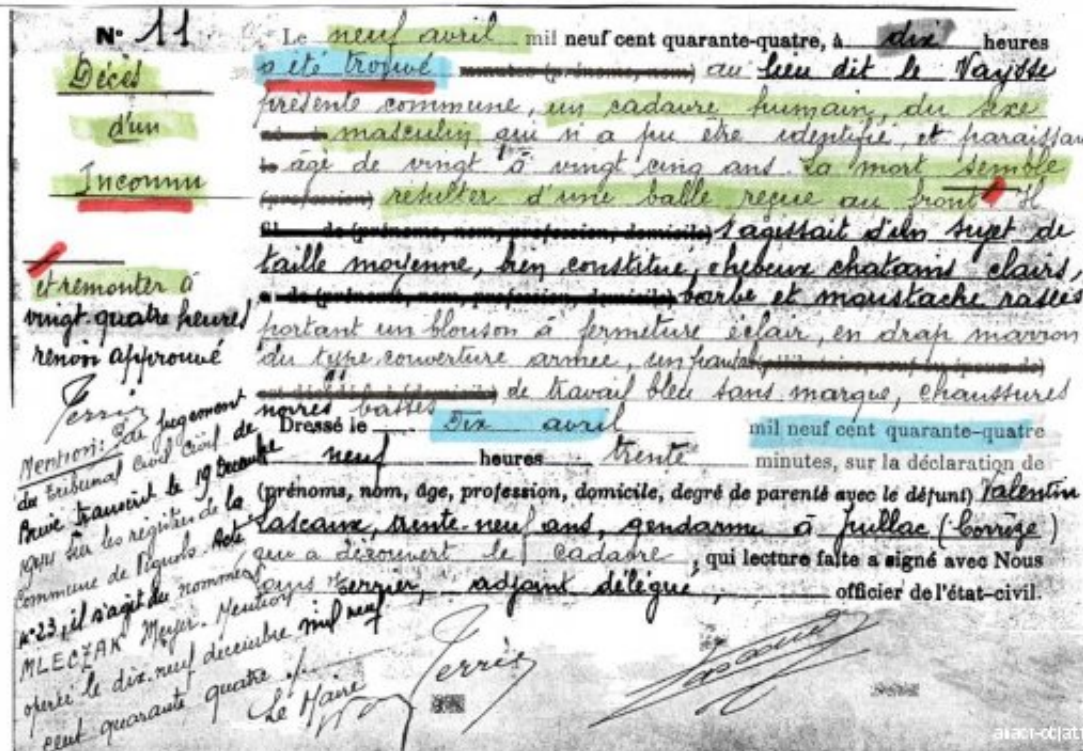 N° 11
Décès
d'un
Inconnu
et remonter à
vingt-quatre heures
renvoi approuvé
Terrier
Mention: de jugement
du Tribunal Civil Civil de
Brive transcrit le 19 Décembre
1944 sur les registres de la
Commune de Vignols. Acte
n° 23, il s'agit du nommé
MLECZAK Meyer. Mention
opérée le dix-neuf décembre mil neuf
cent quarante quatre
Le Maire
Le neuf avril mil neuf cent quarante-quatre, à dix heures
a été trouvé minutes (prénoms, nom) au lieu dit le Vaysse
présente commune, un cadavre humain, du sexe
masculin qui n'a pu être identifié, et paraissait
âgé de vingt à vingt cinq ans. La mort semble
(profession) résulter d'une balle reçue au front. Il
fil de (prénoms, nom, profession, domicile) s'agissait d'un sujet de
taille moyenne, bien constitué, cheveux chatains clairs,
de (prénoms, nom, profession, domicile) barbe et moustache rasées
portant un blouson à fermeture éclair, en drap marron
du type couverture armée, un
de travail bleu sans marque, chaussures
noires basses
Dressé le Dix avril mil neuf cent quarante-quatre
neuf heures trente minutes, sur la déclaration de
(prénoms, nom, âge, profession, domicile, degré de parenté avec le défunt) Valentin
Lascaux, trente-neuf ans, gendarme à Juillac (Corrèze)
qui a découvert le cadavre, qui lecture faite a signé avec Nous
Louis Terrier, adjoint délégué, officier de l'état-civil.
Terrier